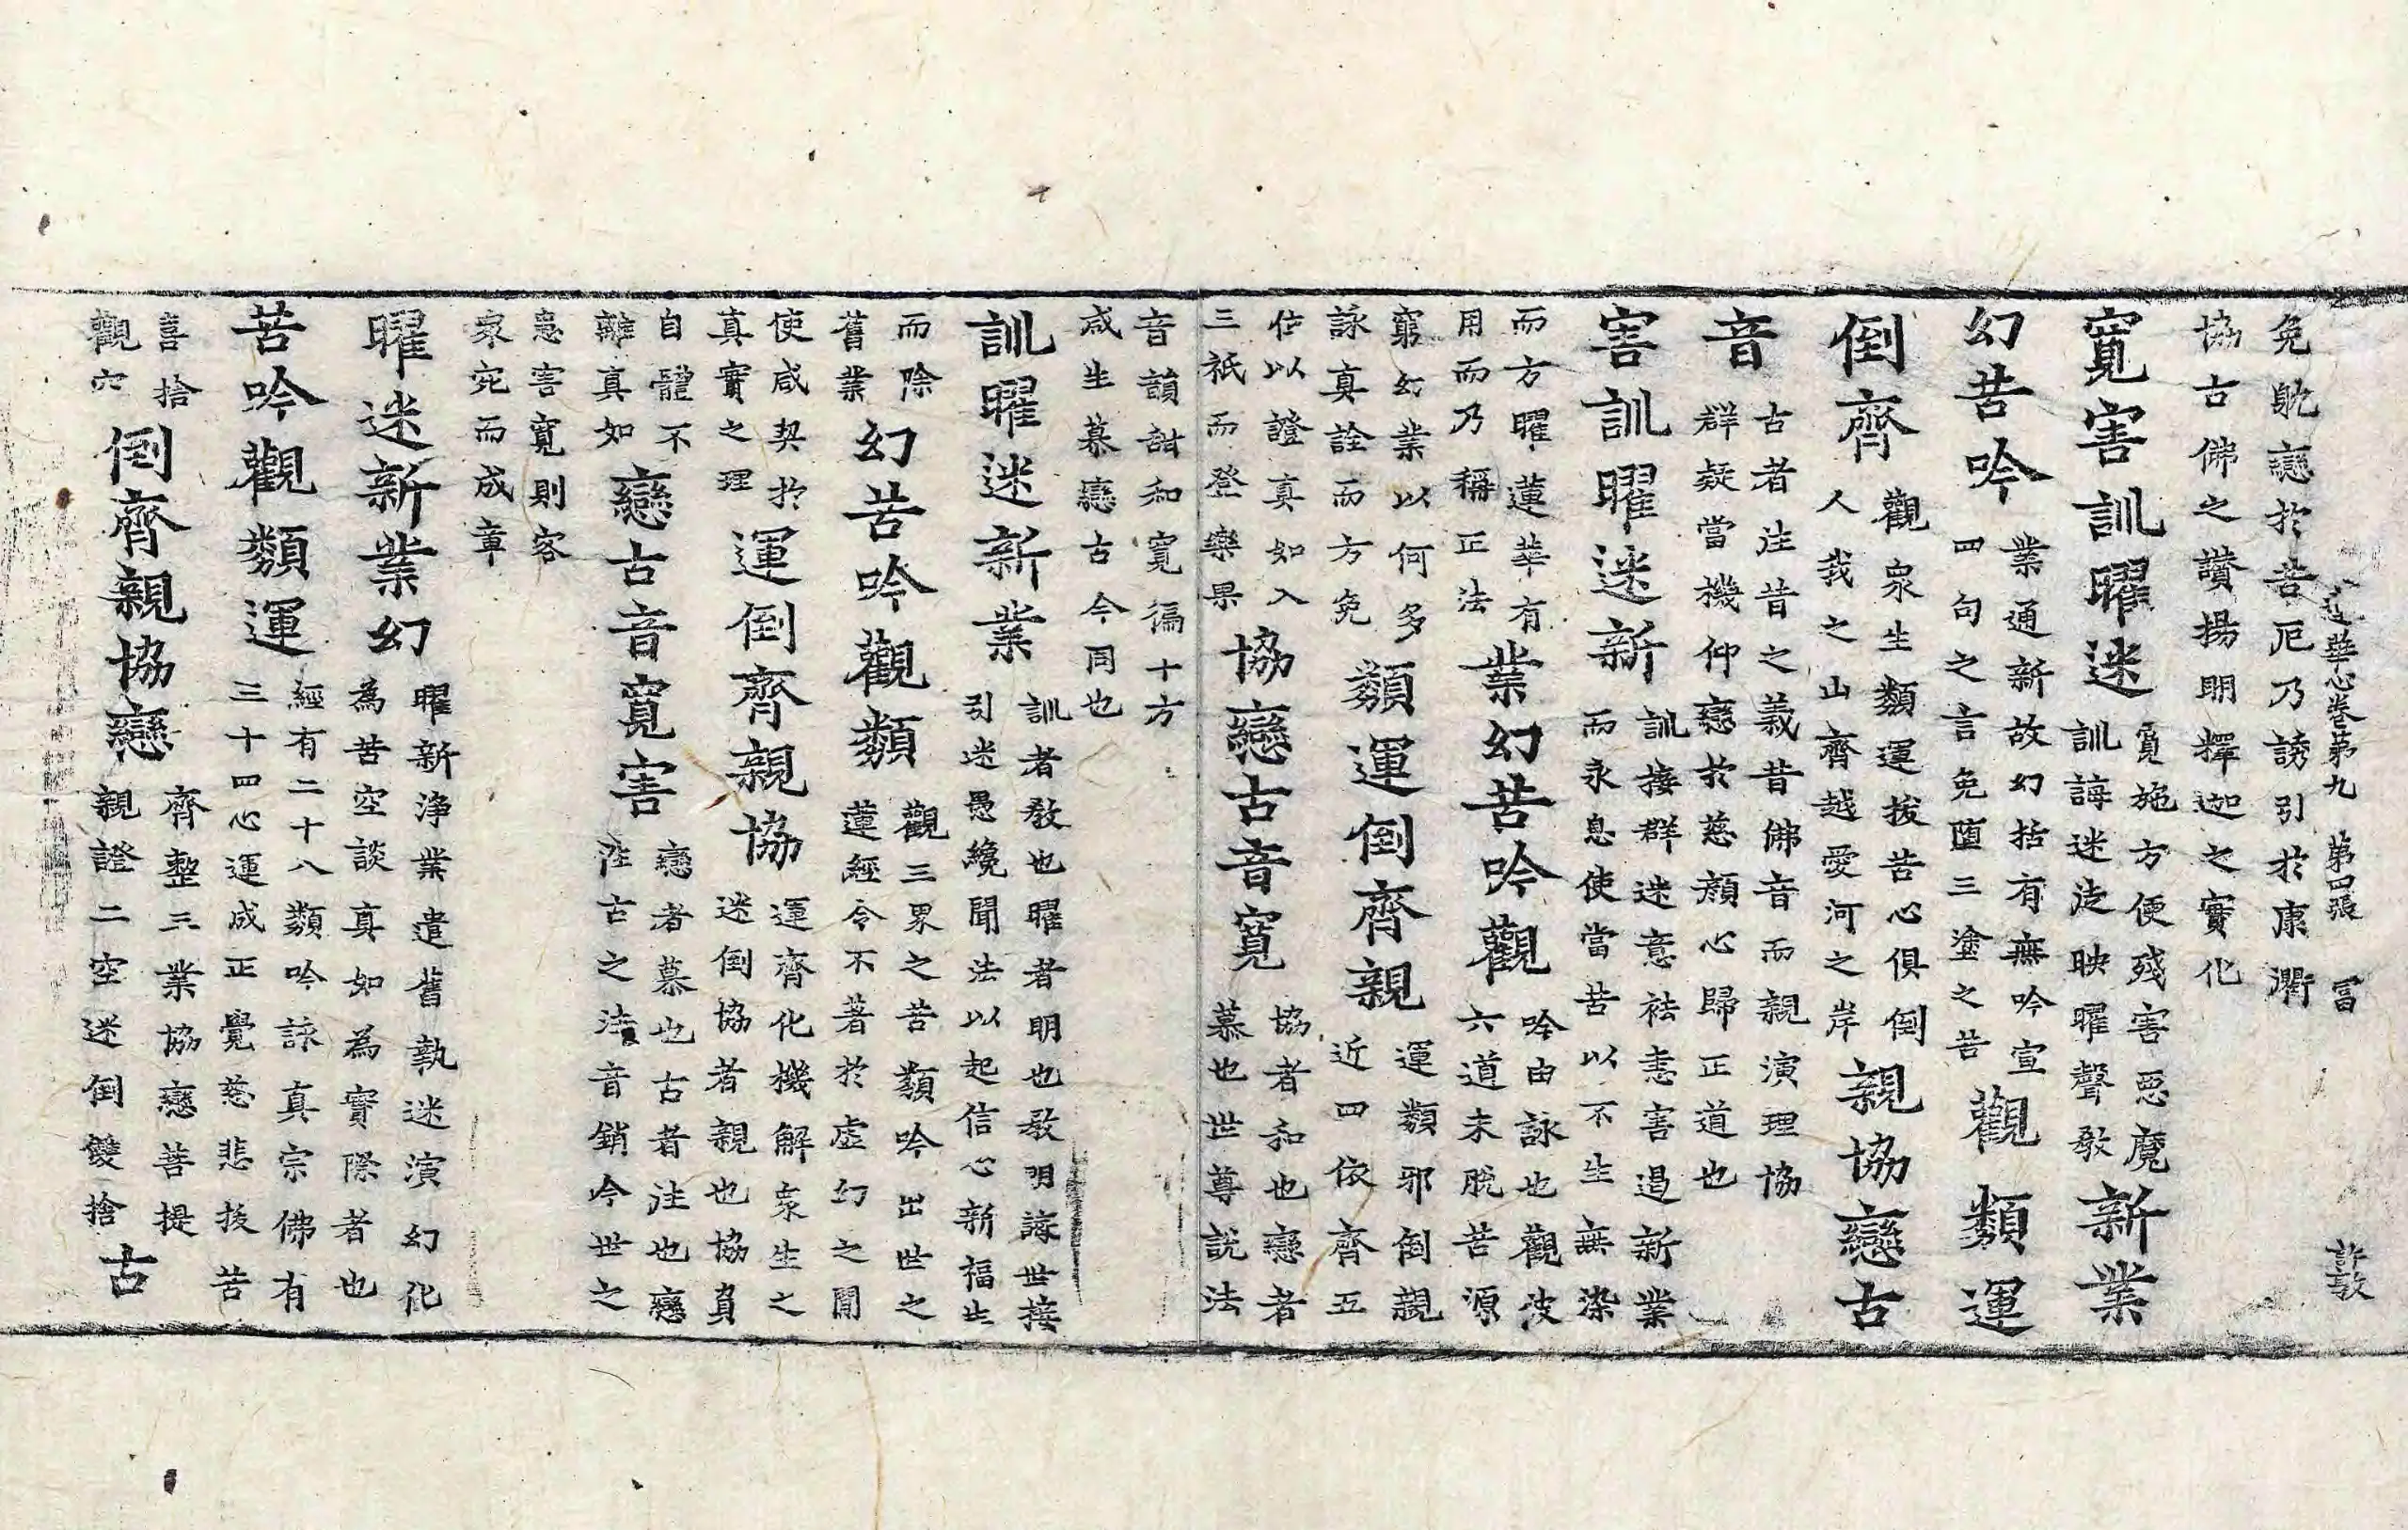 蓮華心卷第九　第四張　冨　許敦
免躭戀於苦厄乃誘引於康衢
協古佛之讚揚明擇迦之實化
寬害訓曜迷
寬施方便殘害惡魔
訓誨迷途映曜聲教
新業
幻苦吟
業通新故幻括有無吟宣
四句之言免墮三塗之苦
觀類運
倒齊
觀衆生類運拔苦心俱倒
人我之山齊越愛河之岸
親協戀古
音
古者往昔之義昔佛音而親演理協
群疑當機仰戀於慈顏心歸正道也
害訓曜迷新
訓接群迷意祛恚害遏新業
而永息使當苦以不生無染
而方曜蓮華有
用而乃稱正法
業幻苦吟觀
吟由詠也觀彼
六道未脫苦源
窮幻業以何多
詠真詮而方免
類運倒齊親
運類邪倒親
近四依齊五
位以證真如入
三祇而登樂果
協戀古音寬
協者和也戀者
慕也世尊説法
音韻甜和寬徧十方
咸生慕戀古今同也
訓曜迷新業
訓者教也曜者明也教明諸世接
引迷愚纔聞法以起信心新福生
而除
舊業
幻苦吟觀類
觀三界之苦類吟出世之
蓮經令不著於虛幻之間
使咸契於
真實之理
運倒齊親協
運齊化機解衆生之
迷倒協者親也協負
自體不
離真如
戀古音寬害
戀者慕也古者往也戀
往古之法音銷今世之
恚害寬則容
衆宛而成章
曜迷新業幻
曜新淨業遣舊執迷演幻化
為苦空談真如為實際者也
苦吟觀類運
經有二十八類吟詠真宗佛有
三十四心運成正覺慈悲拔苦
喜捨
觀六
倒齊親協戀
齊整三業協戀菩提
親證二空迷倒雙捨
古